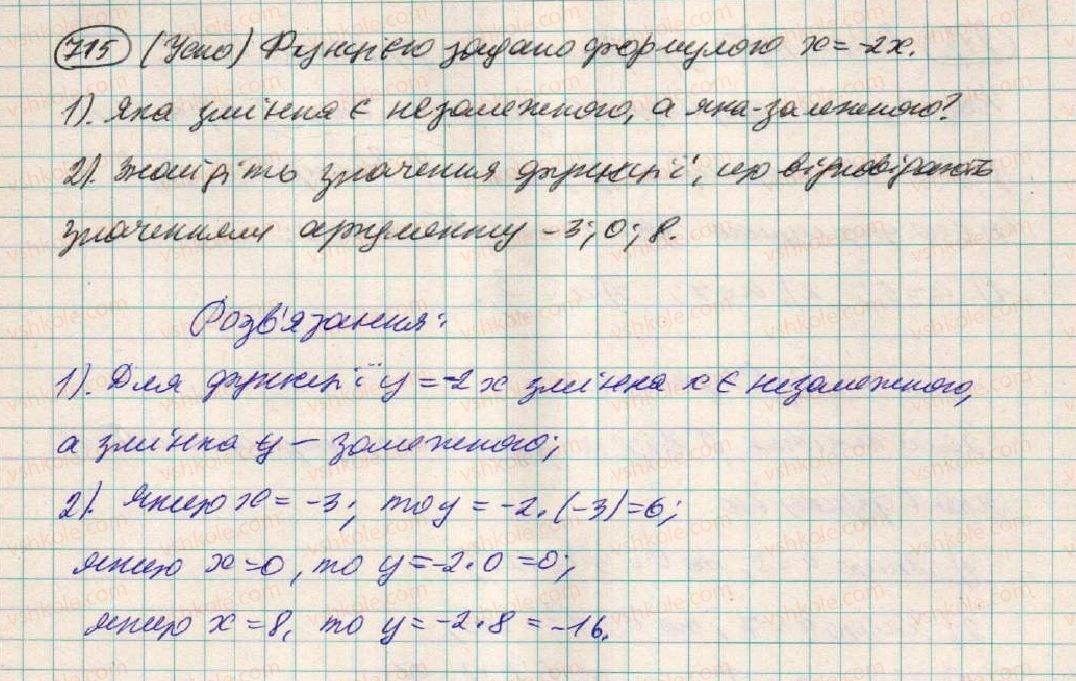 715 (Усно) Функцією задано формулою x = -2x.
1). Яка змінна є незалежною, а яка - залежною?
2). Знайдіть значення функції, що відповідають
значенням аргументу -3; 0; 8.
Розв'язання:
1). Для функції y = -2x змінна x є незалежною,
а змінна y - залежною;
2). якщо x = -3, то y = -2·(-3)=6;
якщо x=0, то y=-2·0=0;
якщо x=8, то y=-2·8=-16.